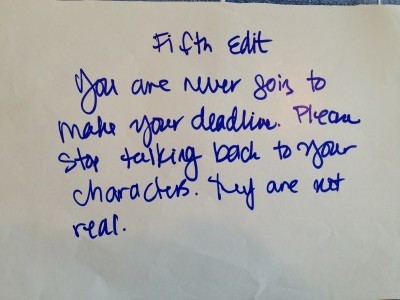 Fifth Edit
You are never going to
make your deadline. Please
stop talking back to your
characters. They are not
real.